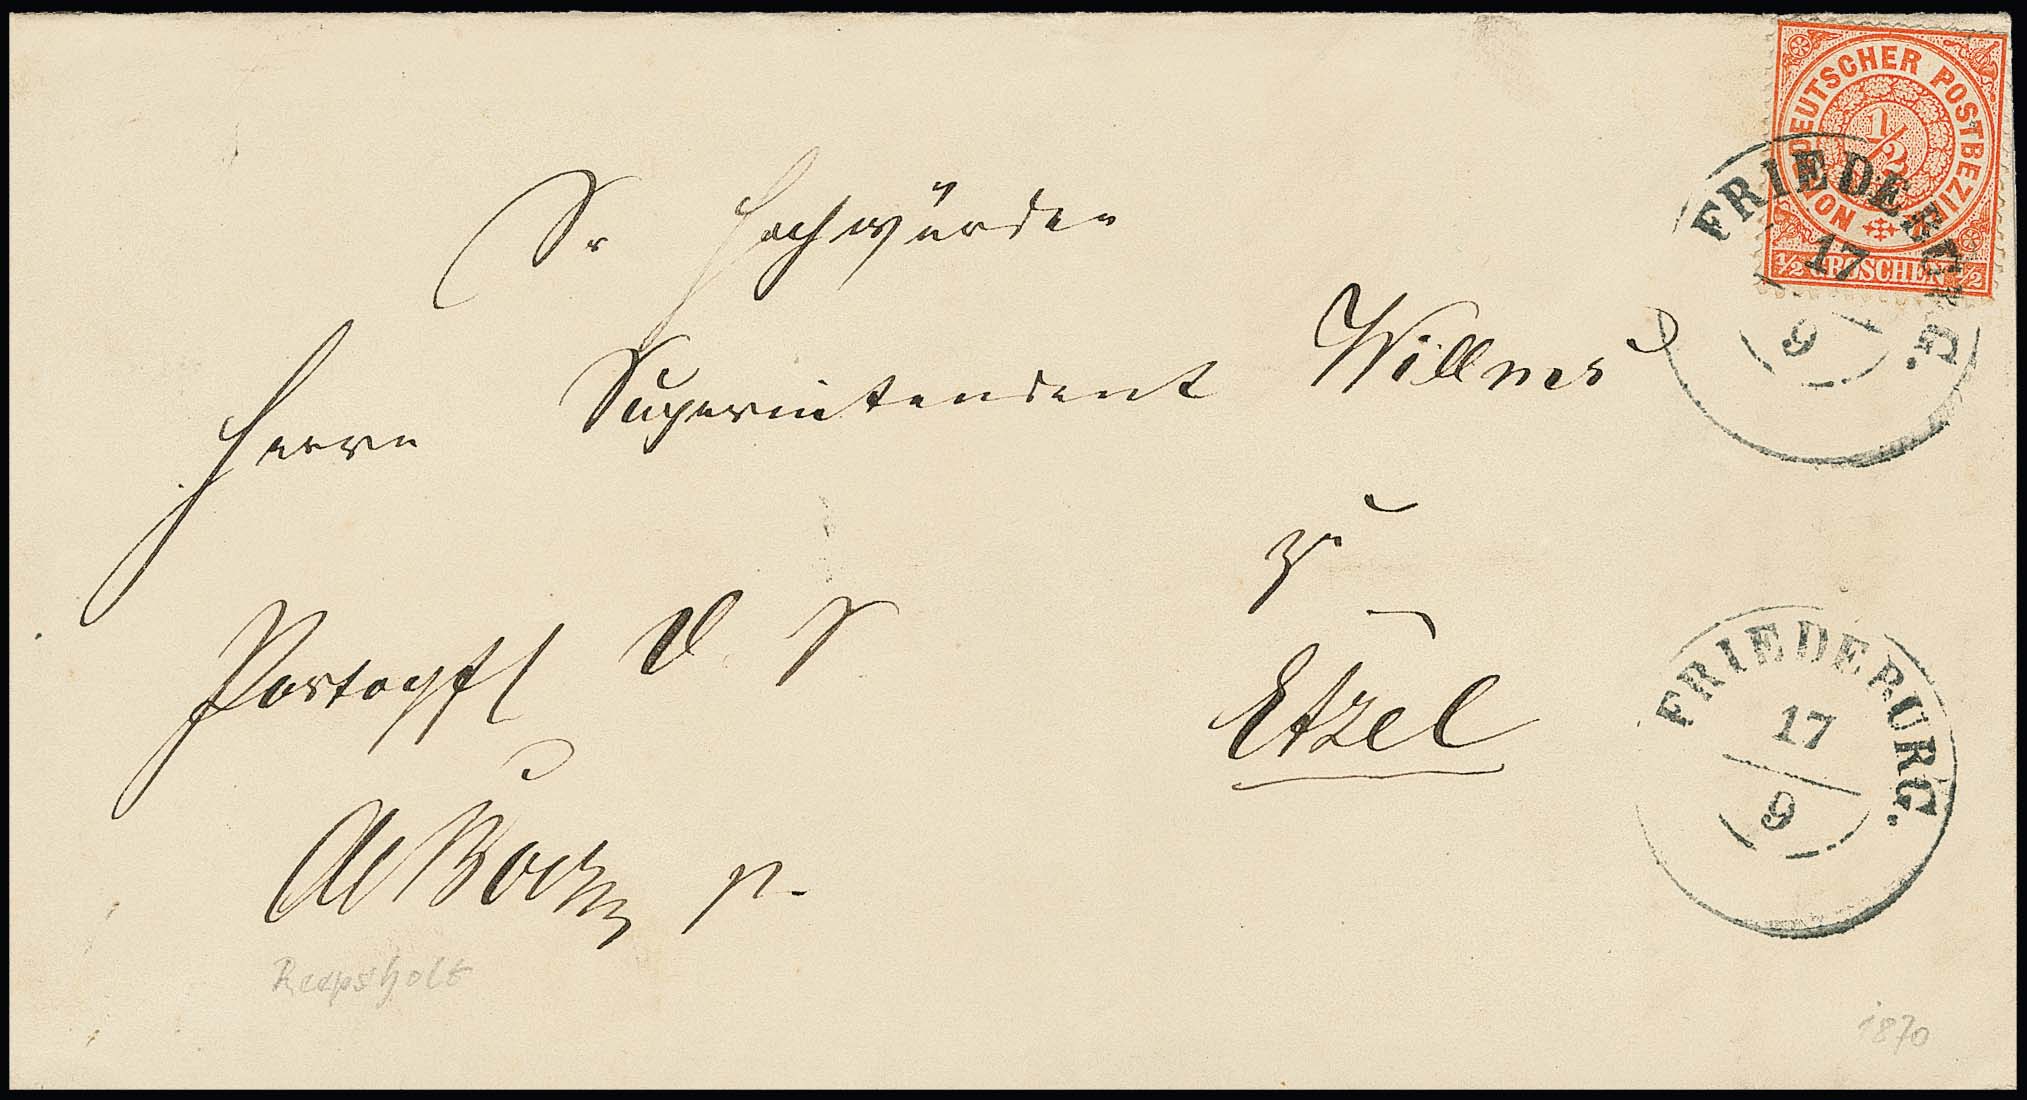 NORDDEUTSCHER POSTBEZIRK
1/2
1/2 GROSCHEN 1/2
FRIEDEBURG.
17
9
Sr Hochwürden
Herrn Superintendent Willms
zu
Etzel
D. S.
FRIEDEBURG.
17
9
Reepsholt
1870